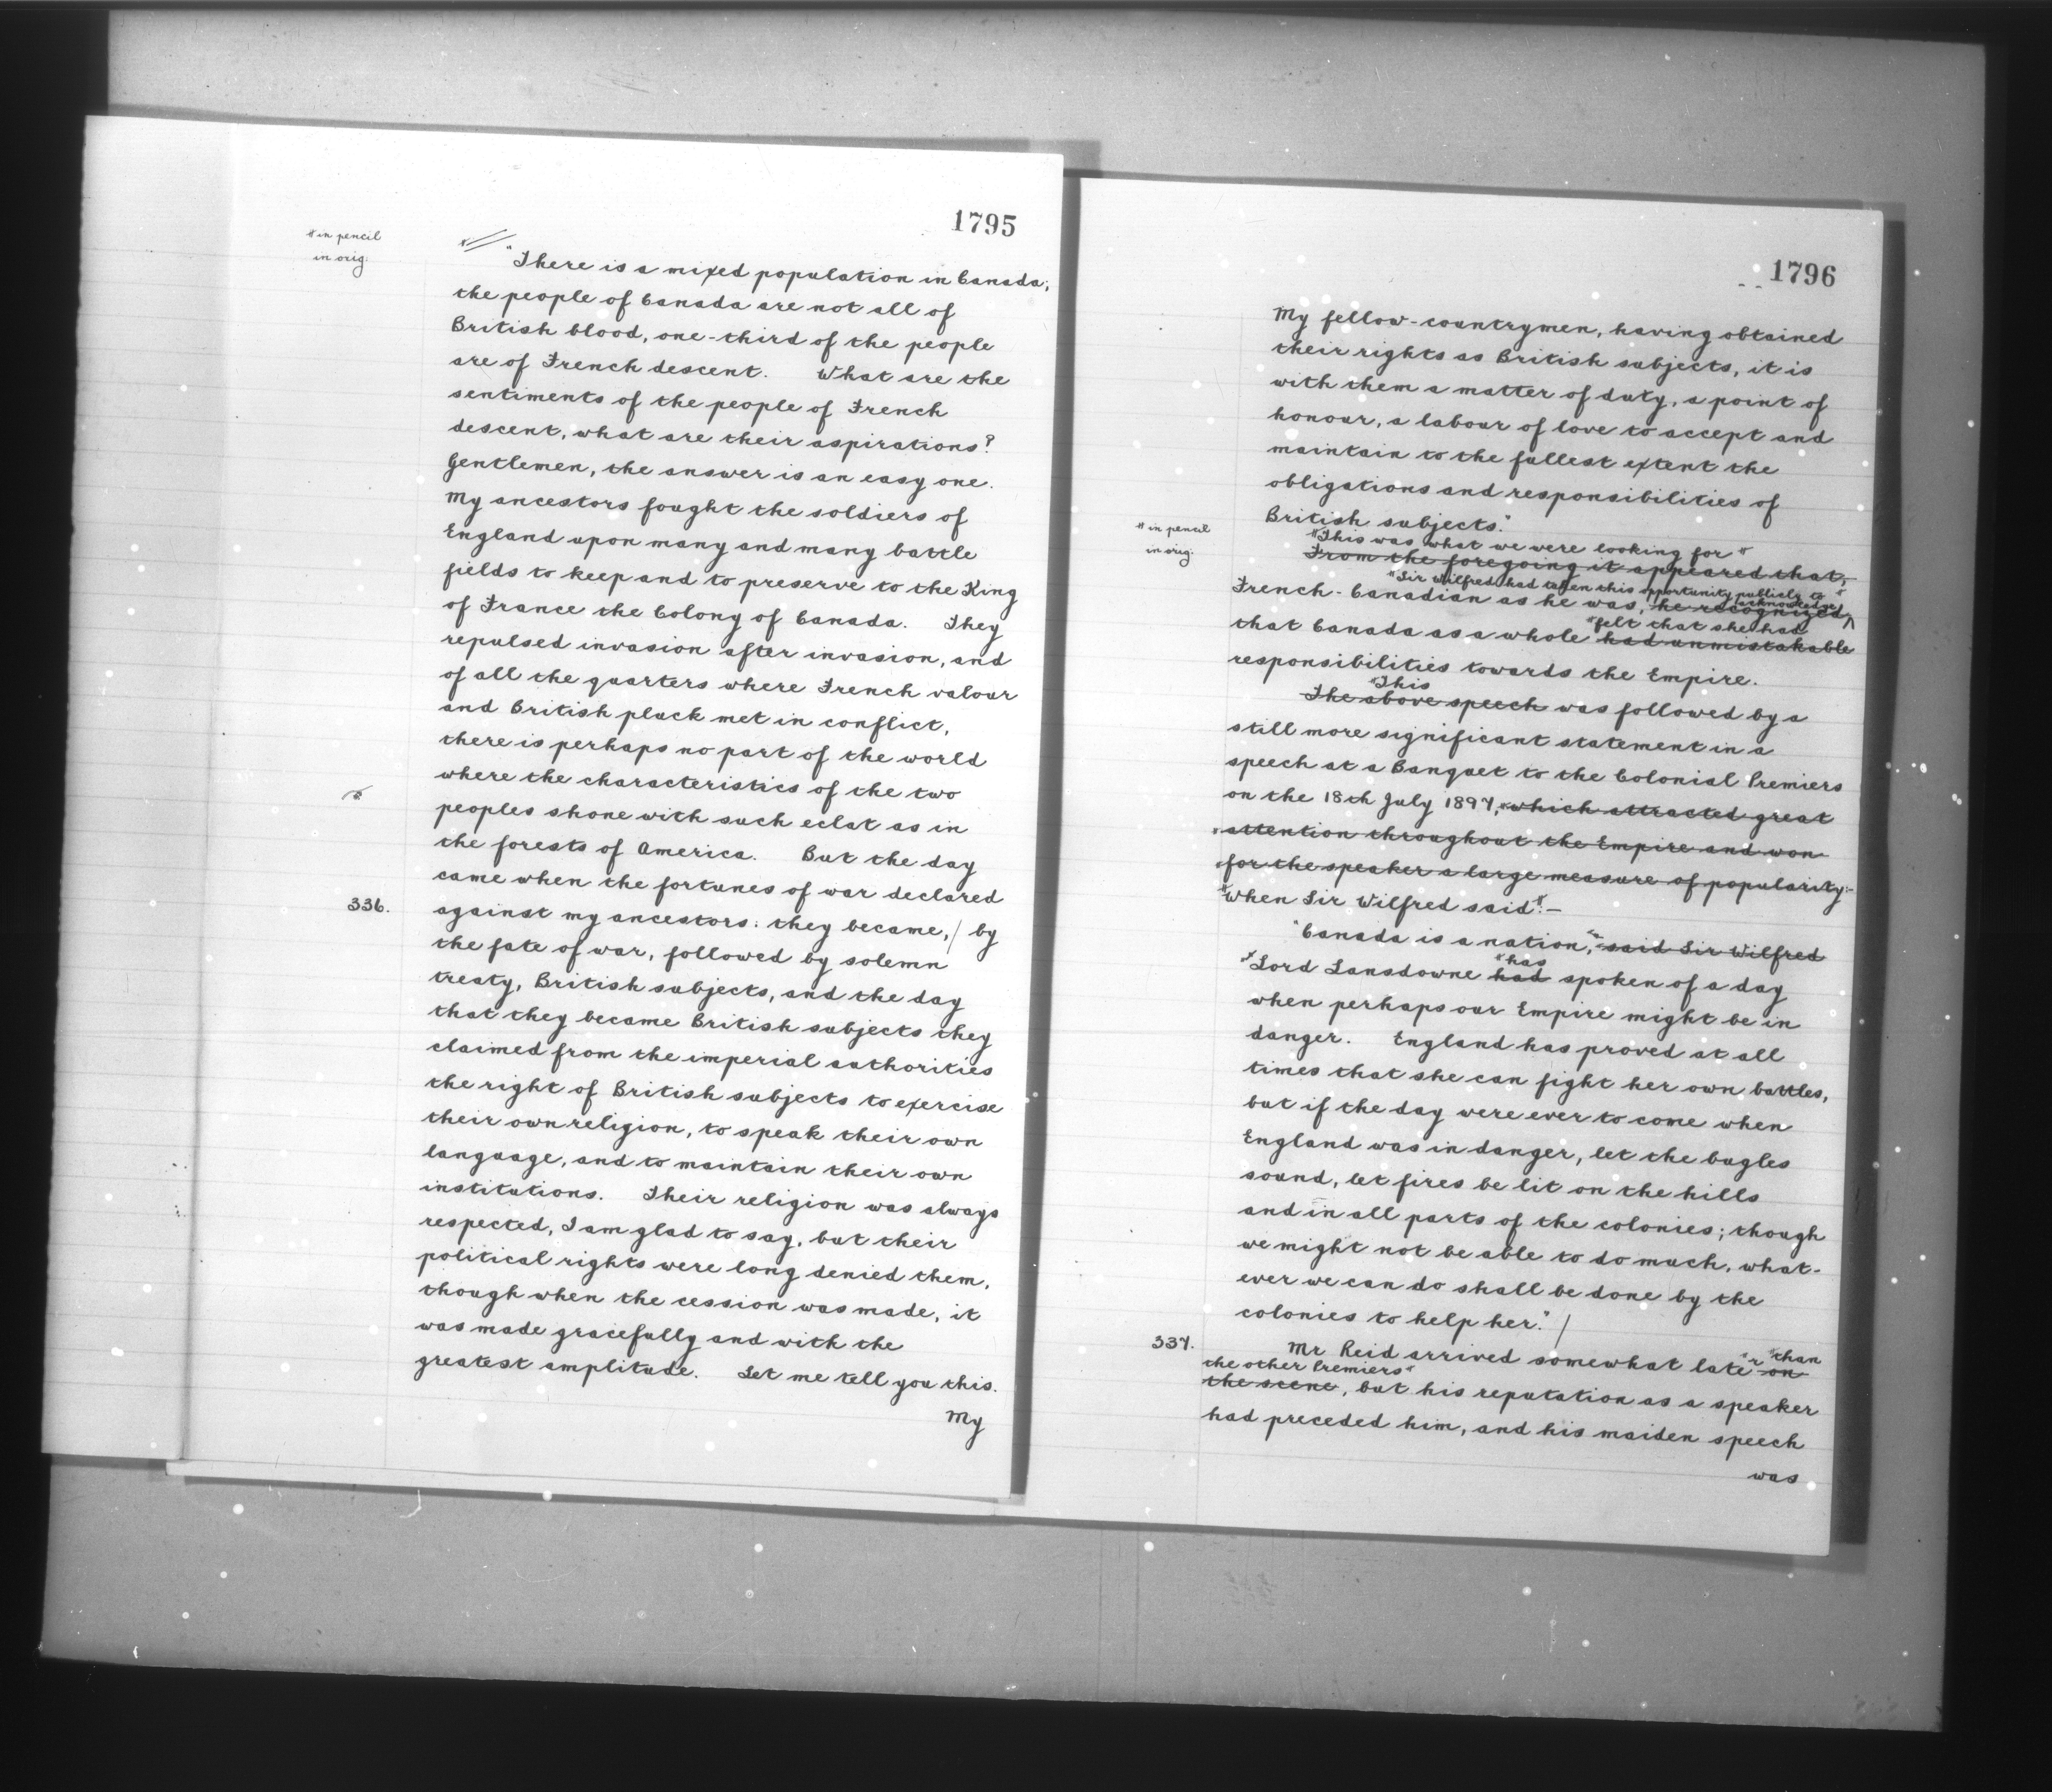 1795
* in pencil
in orig.
"There is a mixed population in Canada;
the people of Canada are not all of
British blood, one-third of the people
are of French descent. What are the
sentiments of the people of French
descent, what are their aspirations?
Gentlemen, the answer is an easy one.
My ancestors fought the soldiers of
England upon many and many battle
fields to keep and to preserve to the King
of France the Colony of Canada. They
repulsed invasion after invasion, and
of all the quarters where French valour
and British pluck met in conflict,
there is perhaps no part of the world
where the characteristics of the two
peoples shone with such eclat as in
the forests of America. But the day
came when the fortunes of war declared
336.
against my ancestors: they became, / by
the fate of war, followed by solemn
treaty, British subjects, and the day
that they became British subjects they
claimed from the imperial authorities
the right of British subjects to exercise
their own religion, to speak their own
language, and to maintain their own
institutions. Their religion was always
respected, I am glad to say, but their
political rights were long denied them,
though when the cession was made, it
was made gracefully and with the
greatest amplitude. Let me tell you this.
My
1796
My fellow-countrymen, having obtained
their rights as British subjects, it is
with them a matter of duty, a point of
honour, a labour of love to accept and
maintain to the fullest extent the
obligations and responsibilities of
British subjects."
* in pencil
in orig.
*This was what we were looking for*
From the foregoing it appeared that,
*Sir Wilfred had taken this opportunity publicly to *
acknowledge
French-Canadian as he was, he recognized
*felt that she had
that Canada as a whole had unmistakable
responsibilities towards the Empire.
*This
The above speech was followed by a
still more significant statement in a
speech at a Banquet to the Colonial Premiers
on the 18th July 1897, *which attracted great
*attention throughout the Empire and won
*for the speaker a large measure of popularity:-
*When Sir Wilfred said*:-
"Canada is a nation," said Sir Wilfred
*has
"Lord Lansdowne had spoken of a day
when perhaps our Empire might be in
danger. England has proved at all
times that she can fight her own battles,
but if the day were ever to come when
England was in danger, let the bugles
sound, let fires be lit on the hills
and in all parts of the colonies; though
we might not be able to do much, what-
ever we can do shall be done by the
colonies to help her." /
337.
Mr Reid arrived somewhat late *r *than on
the other Premiers*
the scene, but his reputation as a speaker
had preceded him, and his maiden speech
was